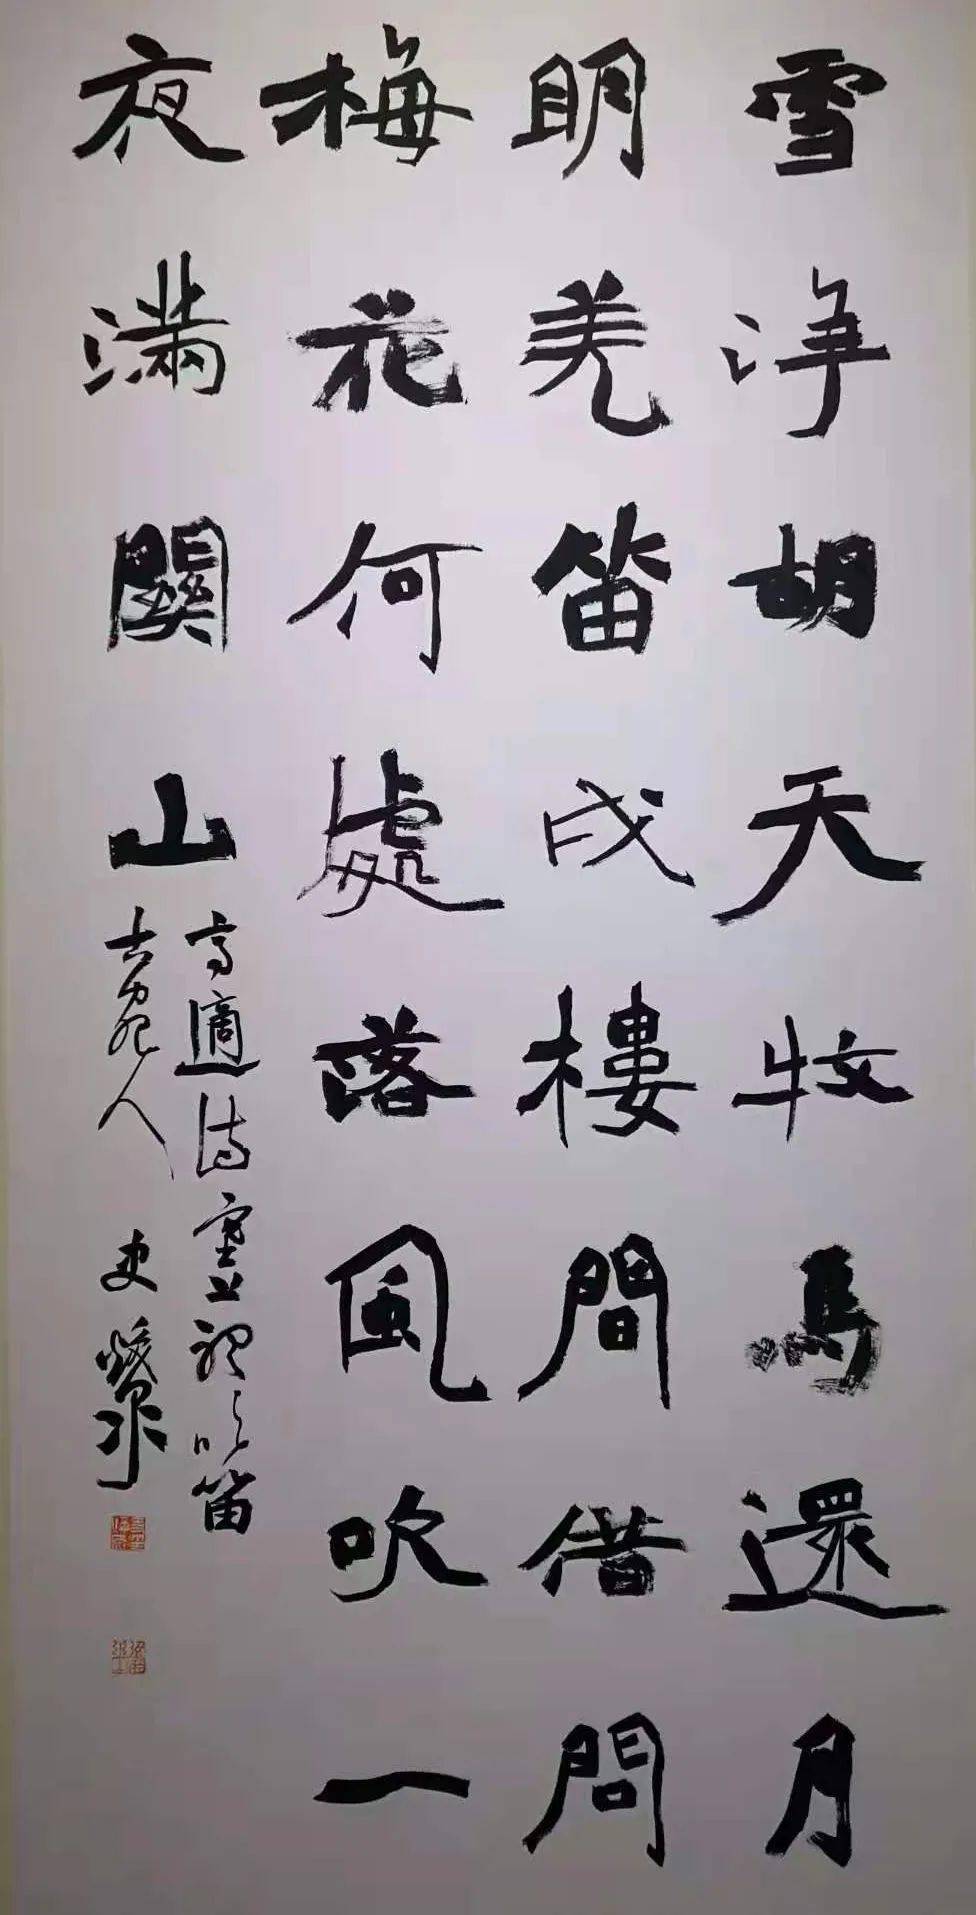 雪淨胡天牧馬還月
明羌笛戍樓間借問
梅花何處落風吹一
夜滿關山
高適詩塞上聽吹笛
古宛人 史焱